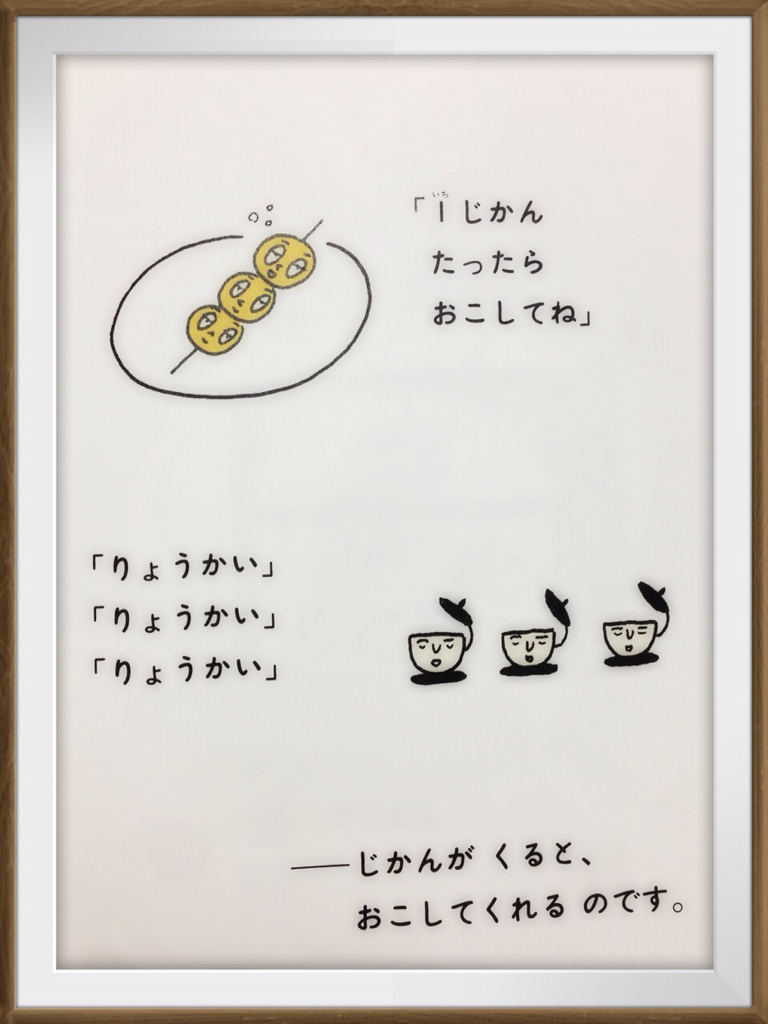 「1じかん
たったら
おこしてね」
「りょうかい」
「りょうかい」
「りょうかい」
──じかんが くると、
おこしてくれる のです。